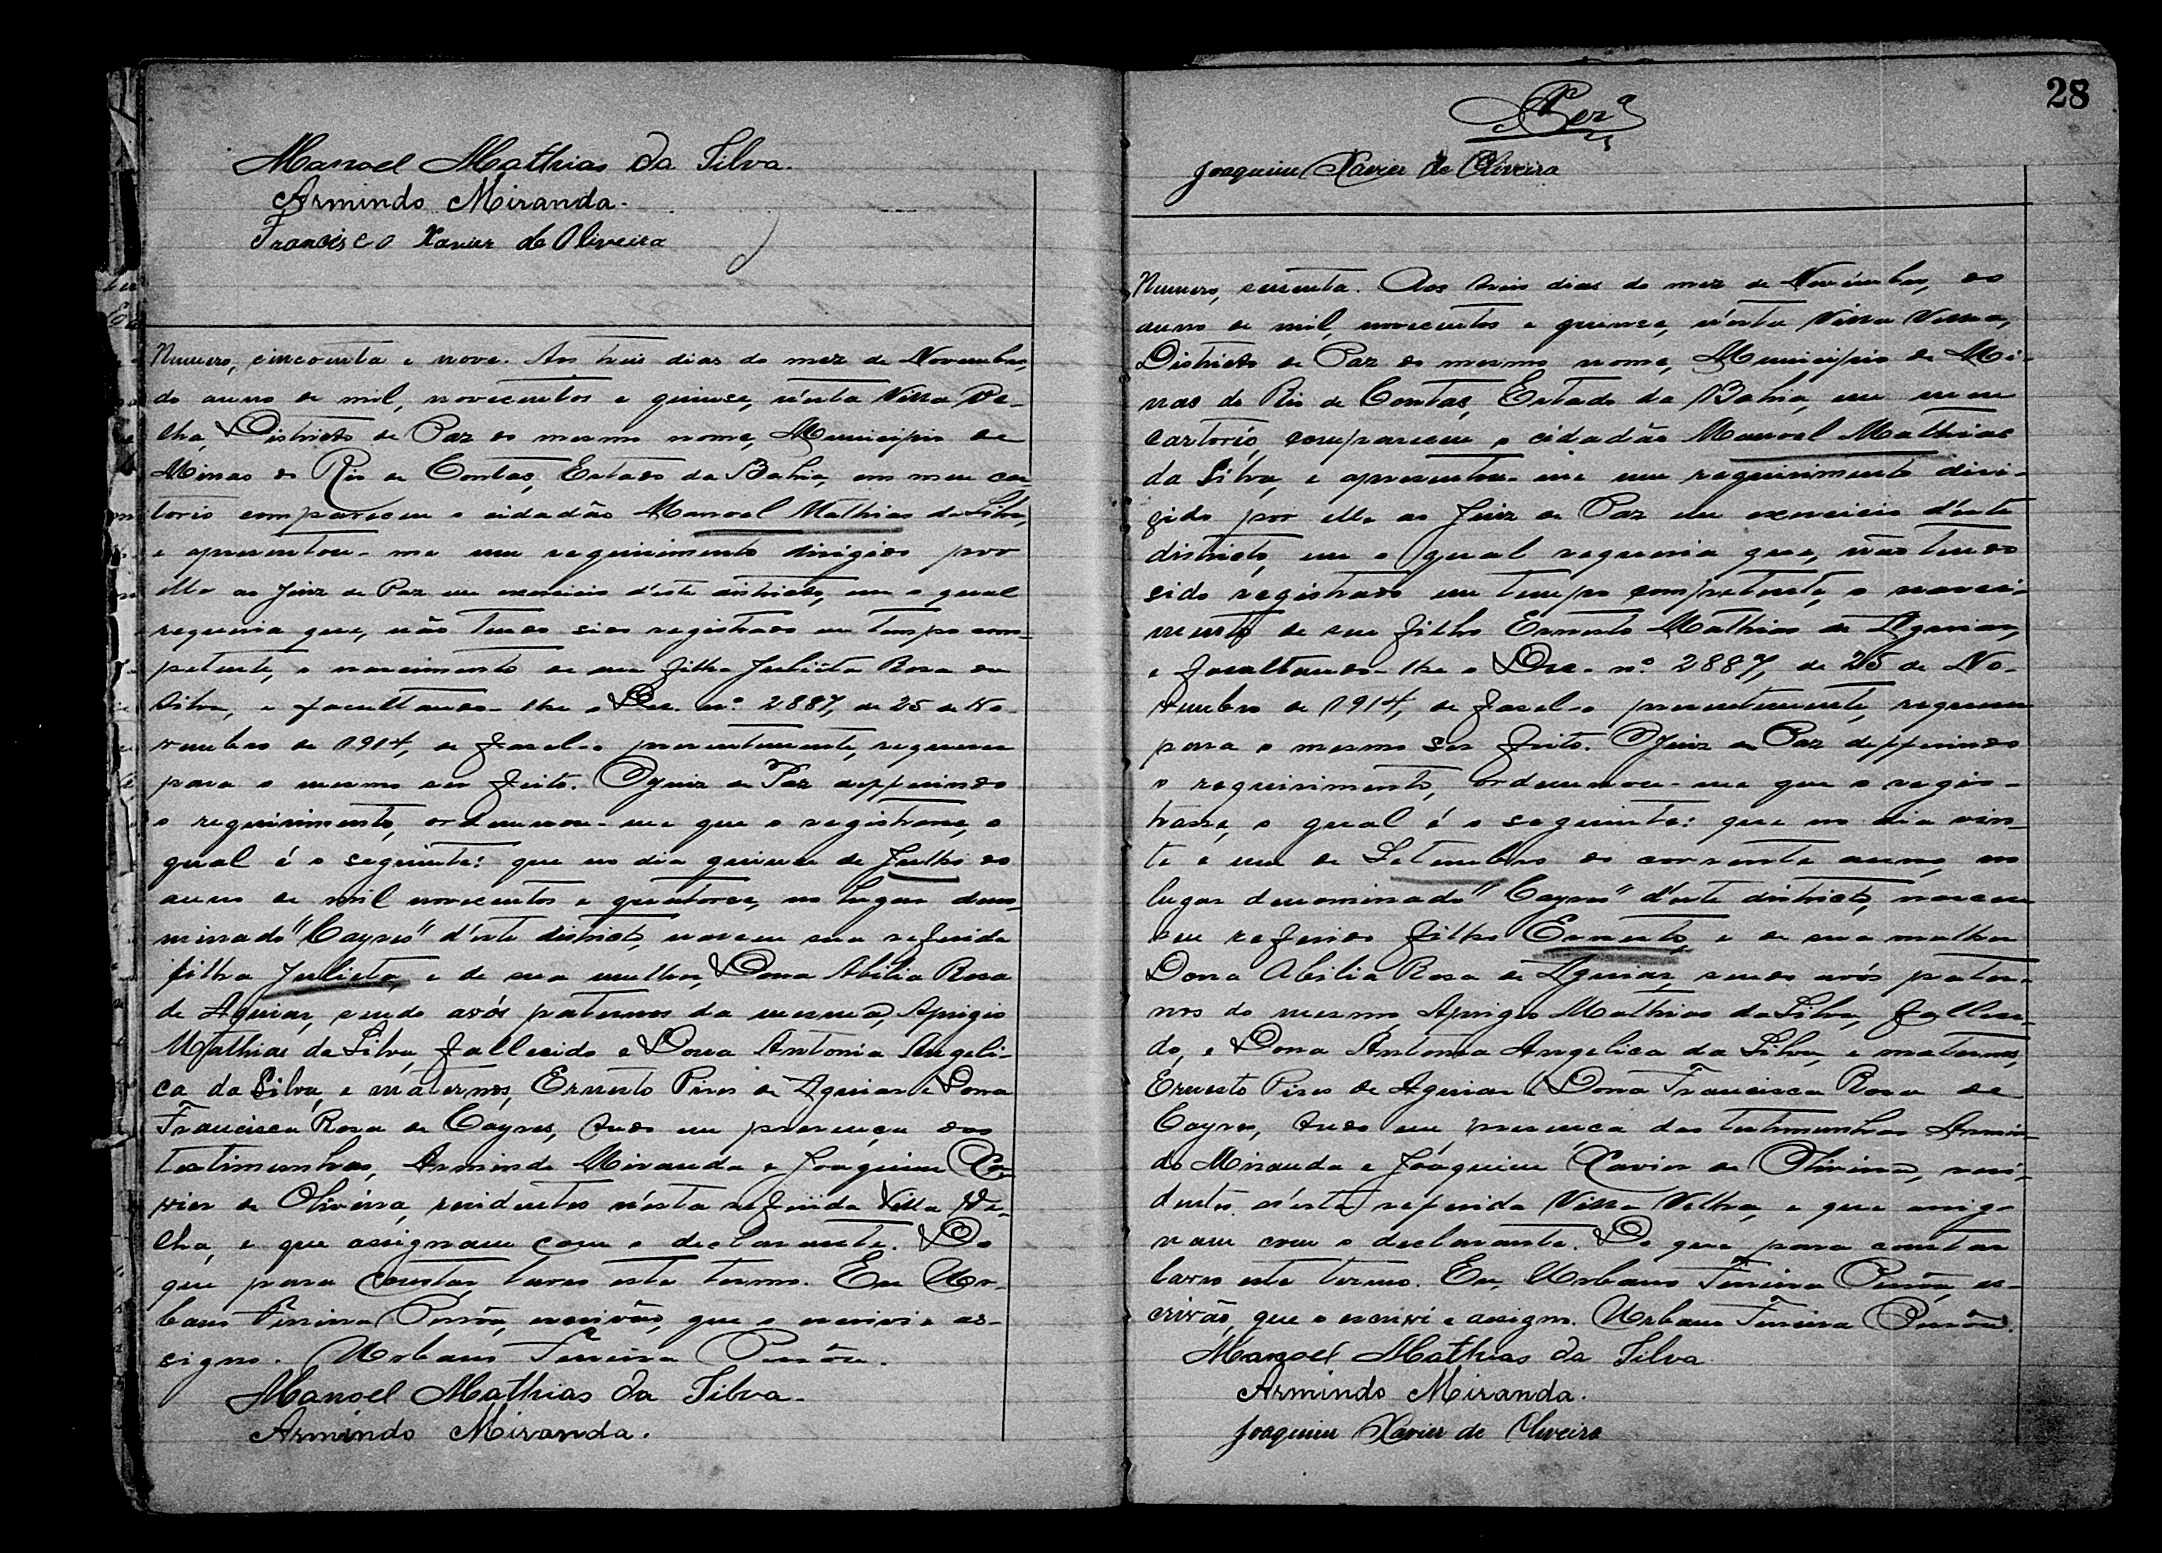 Manoel Mathias da Silva.
Armindo Miranda.
Francisco Xavier de Oliveira
Numero, cincoenta e nove. Aos treis dias do mez de Novembro,
do anno de mil, novecentos e quinse, n'esta Villa Ve-
lha, Districto de Paz do mesmo nome, Municipio de
Minas do Rio de Contas, Estado da Bahia, em meu car-
torio compareceu o cidadão Manoel Mathias da Silva,
e apresentou-me um requirimento dirigido por
elle ao Juiz de Paz em exercicio d'este districto, em o qual
requeria que, não tendo sido registrado em tempo com-
petente, o nascimento de sua filha Julieta Rosa da
Silva, e facultando-lhe o Dec. nº 2887, de 25 de No-
vembro de 1914, de fasel-o presentemente, requeria
para o mesmo ser feito. O Juiz de Paz defferindo
o requirimento, ordennou-me que o registrasse, o
qual é o seguinte: que no dia quinse de Julho do
anno de mil novecentos e quatorse, no lugar deno-
minado "Cayres" d'este districto, nasceu sua referida
filha Julieta, e de sua mulher, Dona Abilia Rosa
de Aguiar, sendo avós paternos da mesma, Aprigio
Mathias da Silva, fallecido e Dona Antonia Angeli-
ca da Silva, e maternos, Ernesto Pires de Aguiar e Dona
Francisca Rosa de Cayres, tudo em presença das
testimunhas, Armindo Miranda e Joaquim Xa-
vier de Oliveira, residentes n'esta referida Villa Ve-
lha, e que assignam com o declarante. Do
que para constar, lavro este termo. Eu Ur-
bano Ferreira escrivão, que o escrivi e as-
signo. Urbano Ferreira
Manoel Mathias da Silva.
Armindo Miranda.
28
Joaquim Xavier de Oliveira
Numero, sessenta. Aos treis dias do mez de Novembro, do
anno de mil, novecentos e quinse, n'esta Villa Velha,
Districto de Paz do mesmo nome, Municipio de Mi-
nas do Rio de Contas, Estado da Bahia, em meu
cartorio, compareceu o cidadão Manoel Mathias
da Silva, e apresentou-me um requirimento diri-
gido por elle ao Juiz de Paz em exercicio d'este
districto, em o qual requeria que, não tendo
sido registrado em tempo competente, o nasci-
mento de seu filho Ernesto Mathias de Aguiar,
e facultando-lhe o Dec. nº 2887, de 25 de No-
vembro de 1914, de fasel-o presentemente, requeria
para o mesmo ser feito. O Juiz de Paz defferindo
o requirimento, ordennou-me que o regis-
trasse, o qual é o seguinte: que no dia vin-
te e um de Setembro do corrente anno, no
lugar denominado "Cayres" d'este districto, nasceu
seu referido filho Ernesto, e de sua mulher
Dona Abilia Rosa de Aguiar, sendo avós pater-
nos do mesmo Aprigio Mathias da Silva, falleci-
do, e Dona Antonia Angelica da Silva, e maternos,
Ernesto Pires de Aguiar e Dona Francisca Rosa de
Cayres, tudo em presença das testimunhas Armin-
do Miranda e Joaquim Xavier de Oliveira, resi-
dentes n'esta referida Villa Velha, e que assig-
nam com o declarante. Do que para constar
lavro este termo. Eu, Urbano Ferreira es-
crivão, que o escrivi e assigno. Urbano Ferreira
Manoel Mathias da Silva
Armindo Miranda.
Joaquim Xavier de Oliveira